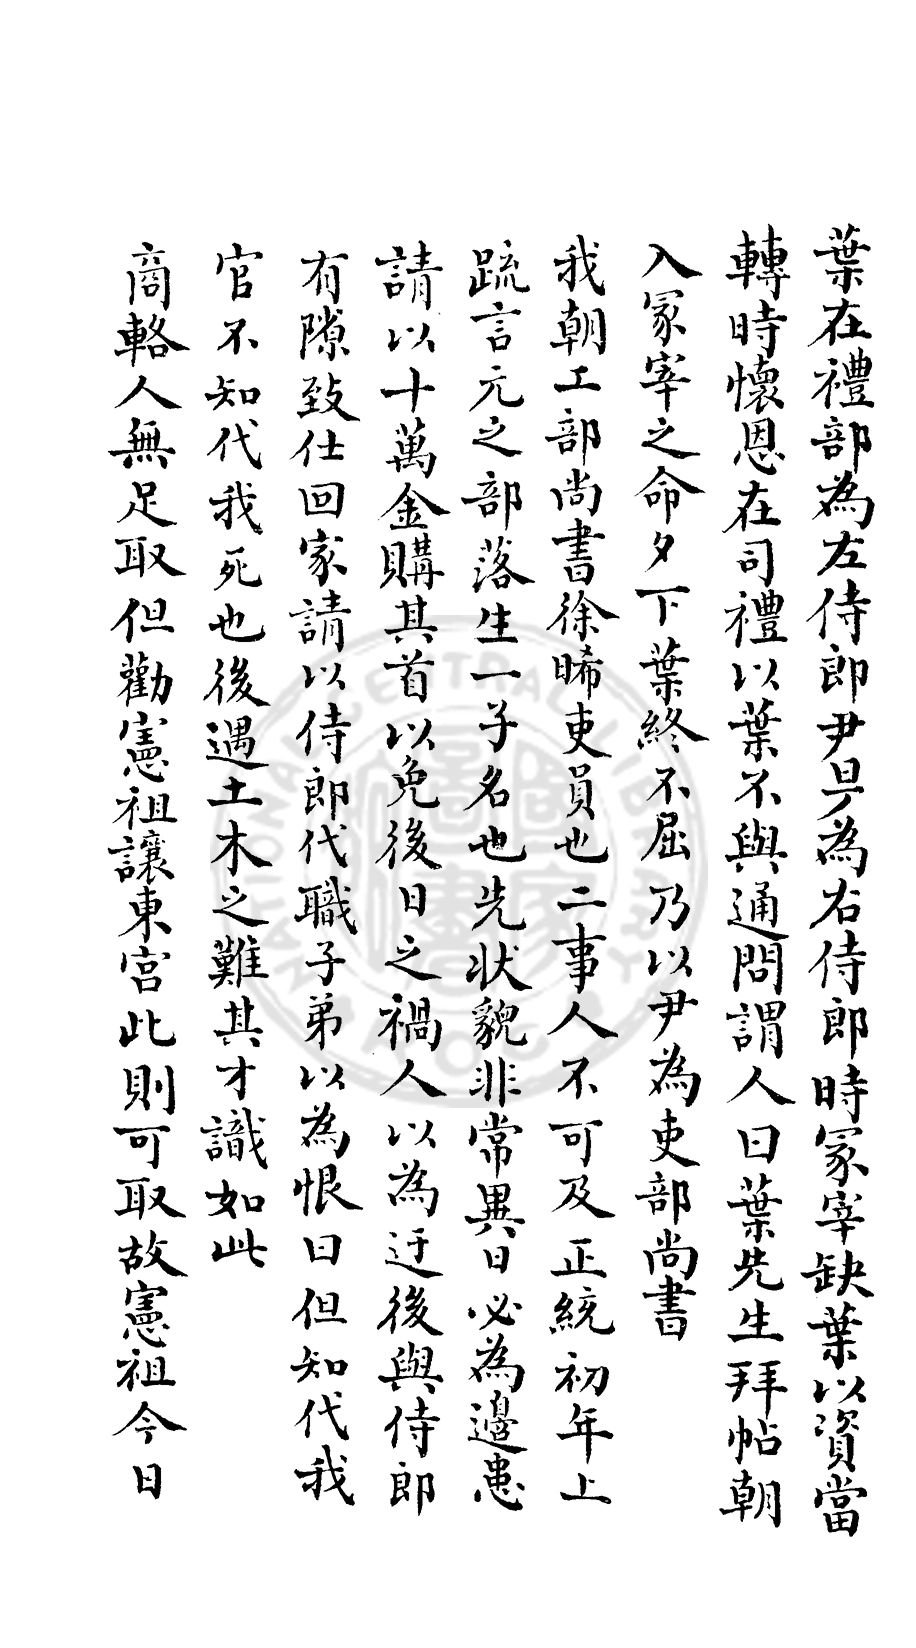 葉在禮部為左侍郎尹旻為右侍郎時冢宰缺葉以資當
轉時懷恩在司禮以葉不與通問謂人曰葉先生拜帖朝
入冢宰之命夕下葉終不屈乃以尹為吏部尚書
我朝工部尚書徐晞吏員也二事人不可及正統初年上
疏言元之部落生一子名也先狀貌非常異日必為邊患
請以十萬金購其首以免後日之禍人以為迂後與侍郎
有隙致仕回家請以侍郎代職子弟以為恨曰但知代我
官不知代我死也後遇土木之難其才識如此
商輅人無足取但勸憲祖讓東宮此則可取故憲祖今日
NATIONAL CENTRAL LIBRARY
ROC
國家圖書